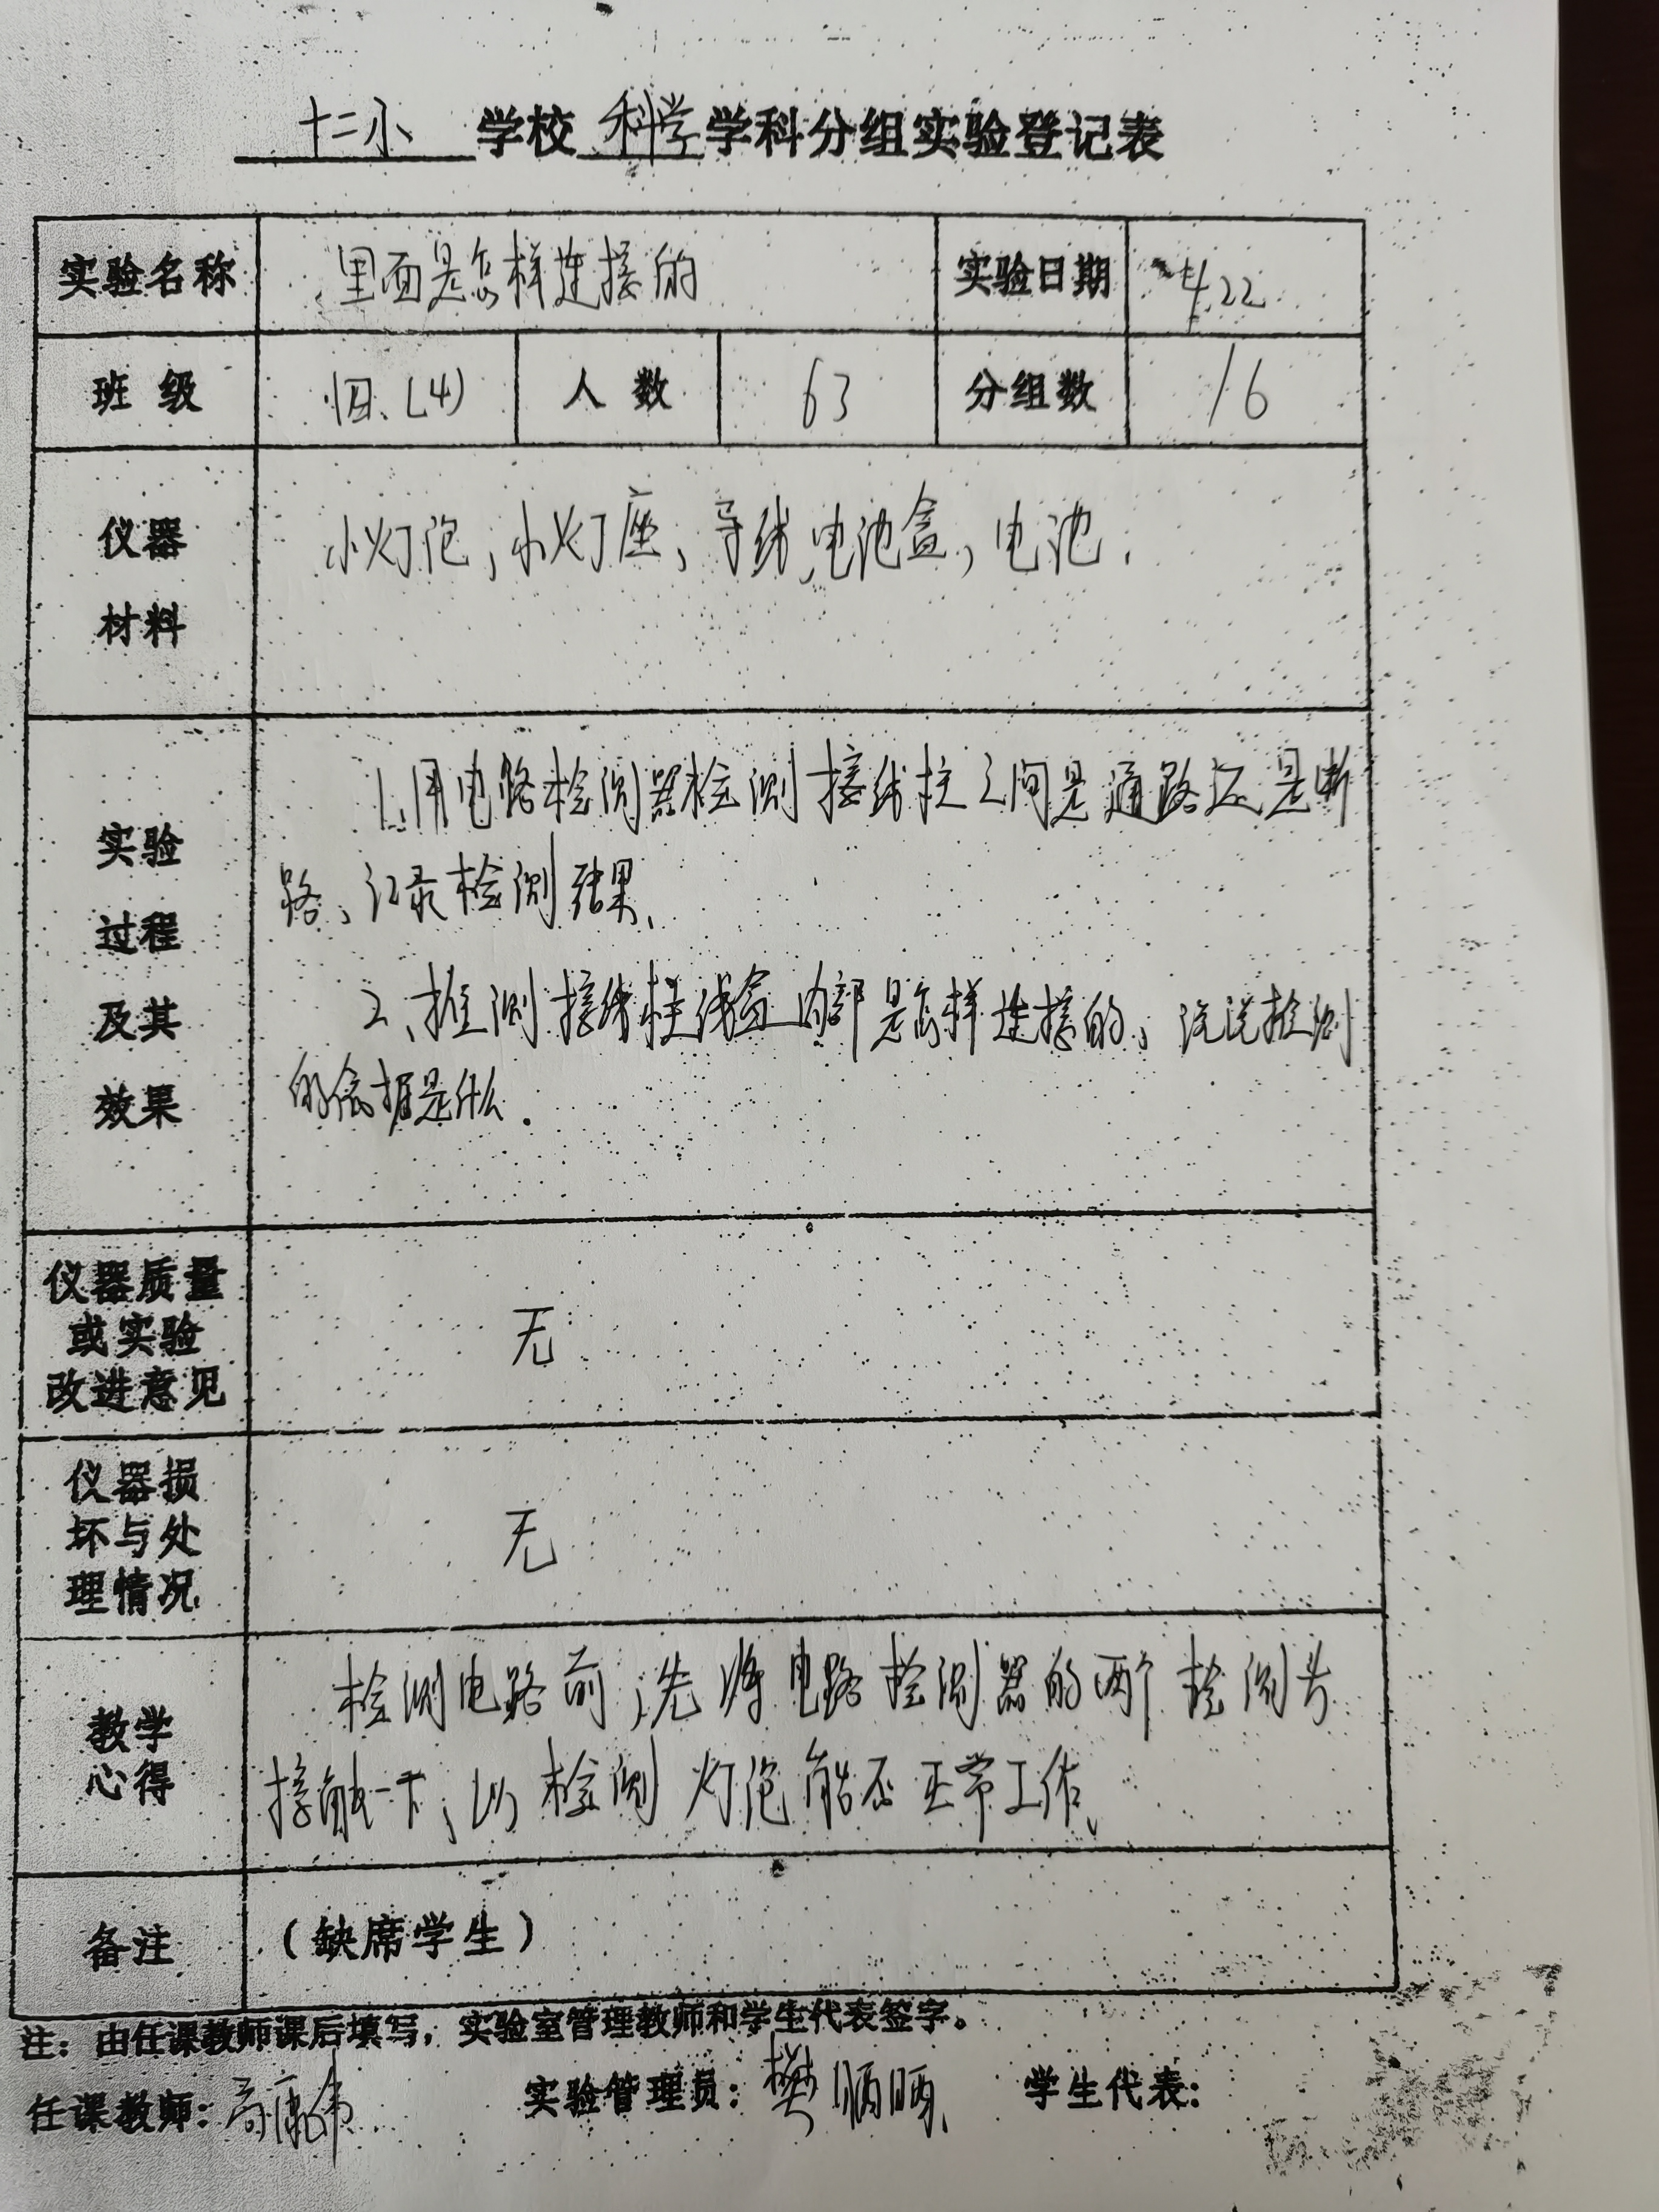 十二小 学校 科学 学科分组实验登记表
实验名称 里面是怎样连接的 实验日期 4.22
班级 四.(4) 人数 63 分组数 16
仪器
材料
小灯泡,小灯座、导线,电池盒,电池.
实验
过程
及其
效果
1.用电路检测器检测接线柱之间是通路还是断
路、记录检测结果、
2、推测接线柱线盒内部是怎样连接的、说说推测
的依据是什么.
仪器质量
或实验
改进意见
无
仪器损
坏与处
理情况
无
教学
心得
检测电路前,先将电路检测器的两个检测头
接触一下,以检测灯泡能否正常工作、
备注 (缺席学生)
注:由任课教师课后填写,实验室管理教师和学生代表签字。
任课教师: 实验管理员:樊 学生代表: